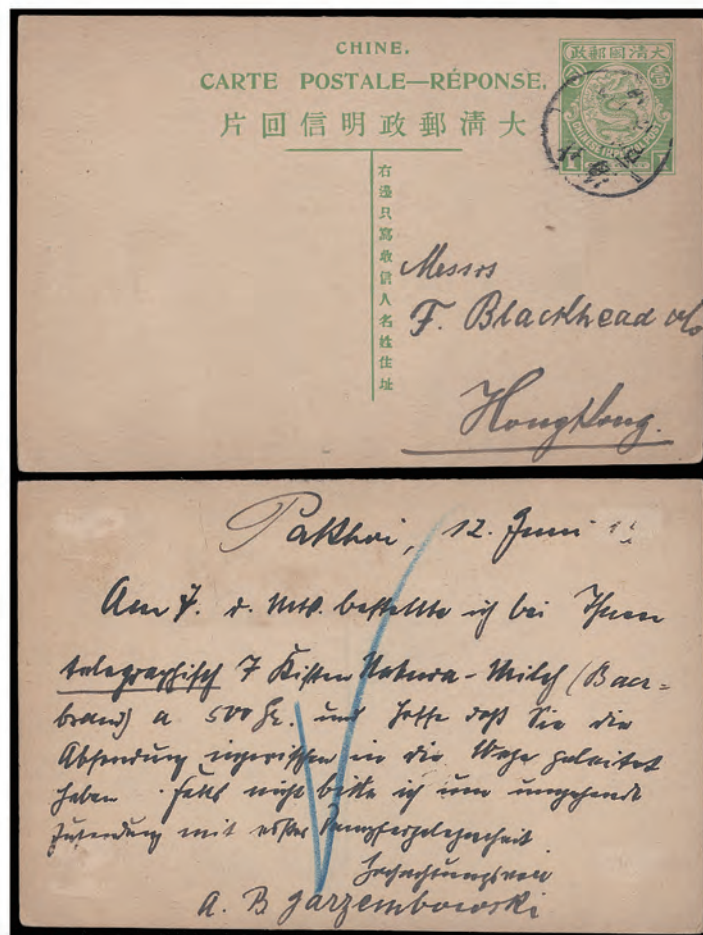 CHINE.
CARTE POSTALE—RÉPONSE.
片回信明政郵清大
政郵國清大
CHINESE IMPERIAL POST
1
右邊只寫收信人名姓住址
Messrs
F. Blackhead & Co
HongKong.
Pakhoi, 12. Juni
Am 7. d. Mts. bestellte ich bei Ihnen
telegraphisch 7 Kisten Natura-Milch (Baer=
brand) a 500 Gr. und hoffe daß Sie die
Absendung inzwischen in die Wege geleitet
haben. Falls nicht bitte ich um umgehende
Zusendung mit erster Dampfergelegenheit
Hochachtungsvoll
A. B Jarzembowski